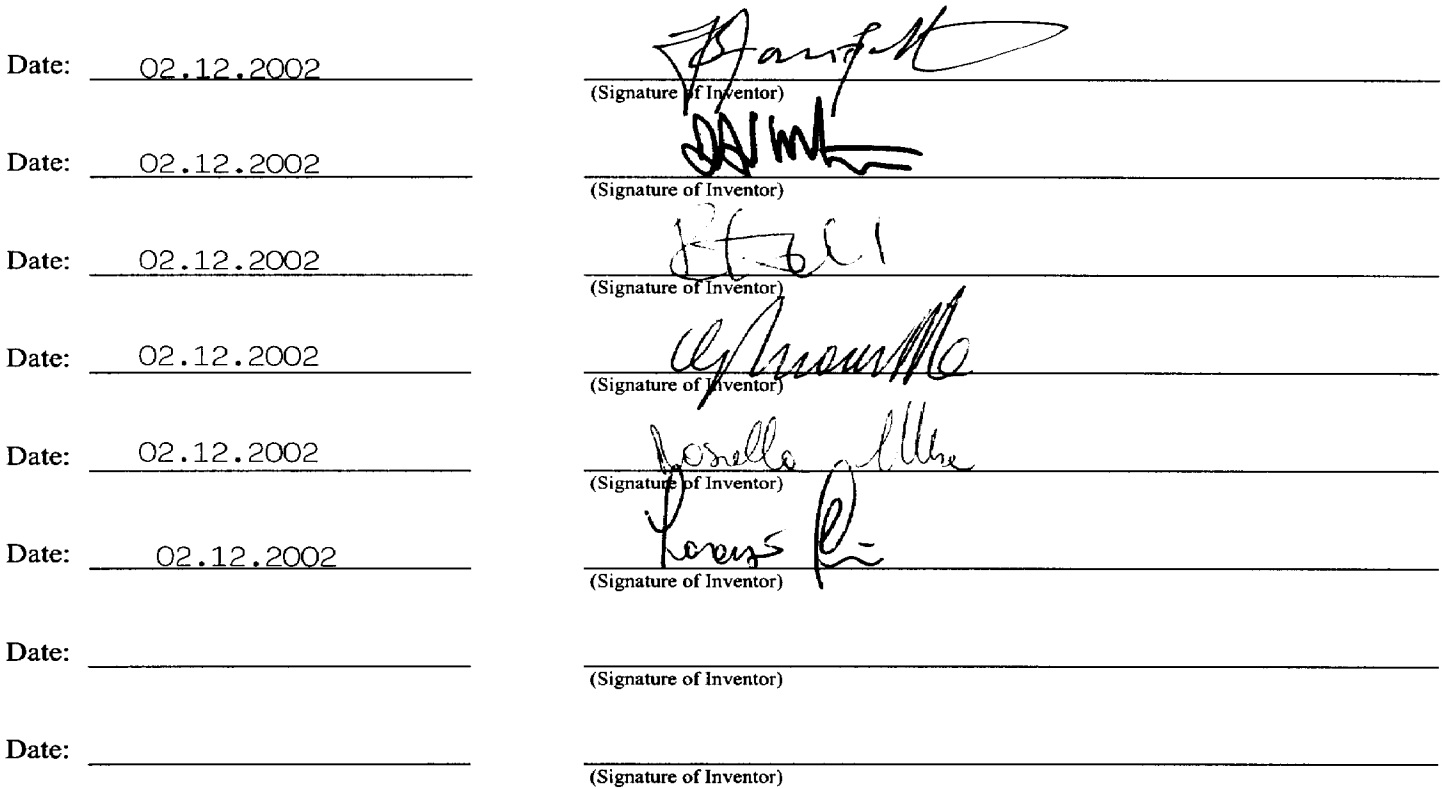 Date: 02.12.2002
(Signature of Inventor)
Date: 02.12.2002
(Signature of Inventor)
Date: 02.12.2002
(Signature of Inventor)
Date: 02.12.2002
(Signature of Inventor)
Date: 02.12.2002 Rosella
(Signature of Inventor)
Date: 02.12.2002 Lorenzo
(Signature of Inventor)
Date:
(Signature of Inventor)
Date:
(Signature of Inventor)